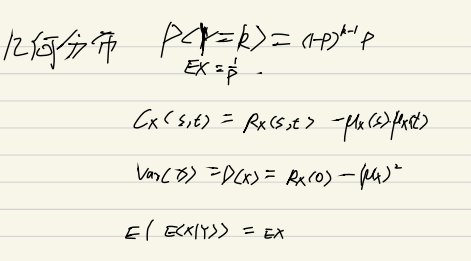 几何分布 P(Y=k)=(1-p)^{k-1} p
EX = 1/p .
C_X(s,t) = R_X(s,t) - μ_X(s)μ_X(t)
Var(X) = D(X) = R_X(0) - (μ_X)^2
E( E(X|Y)) = EX